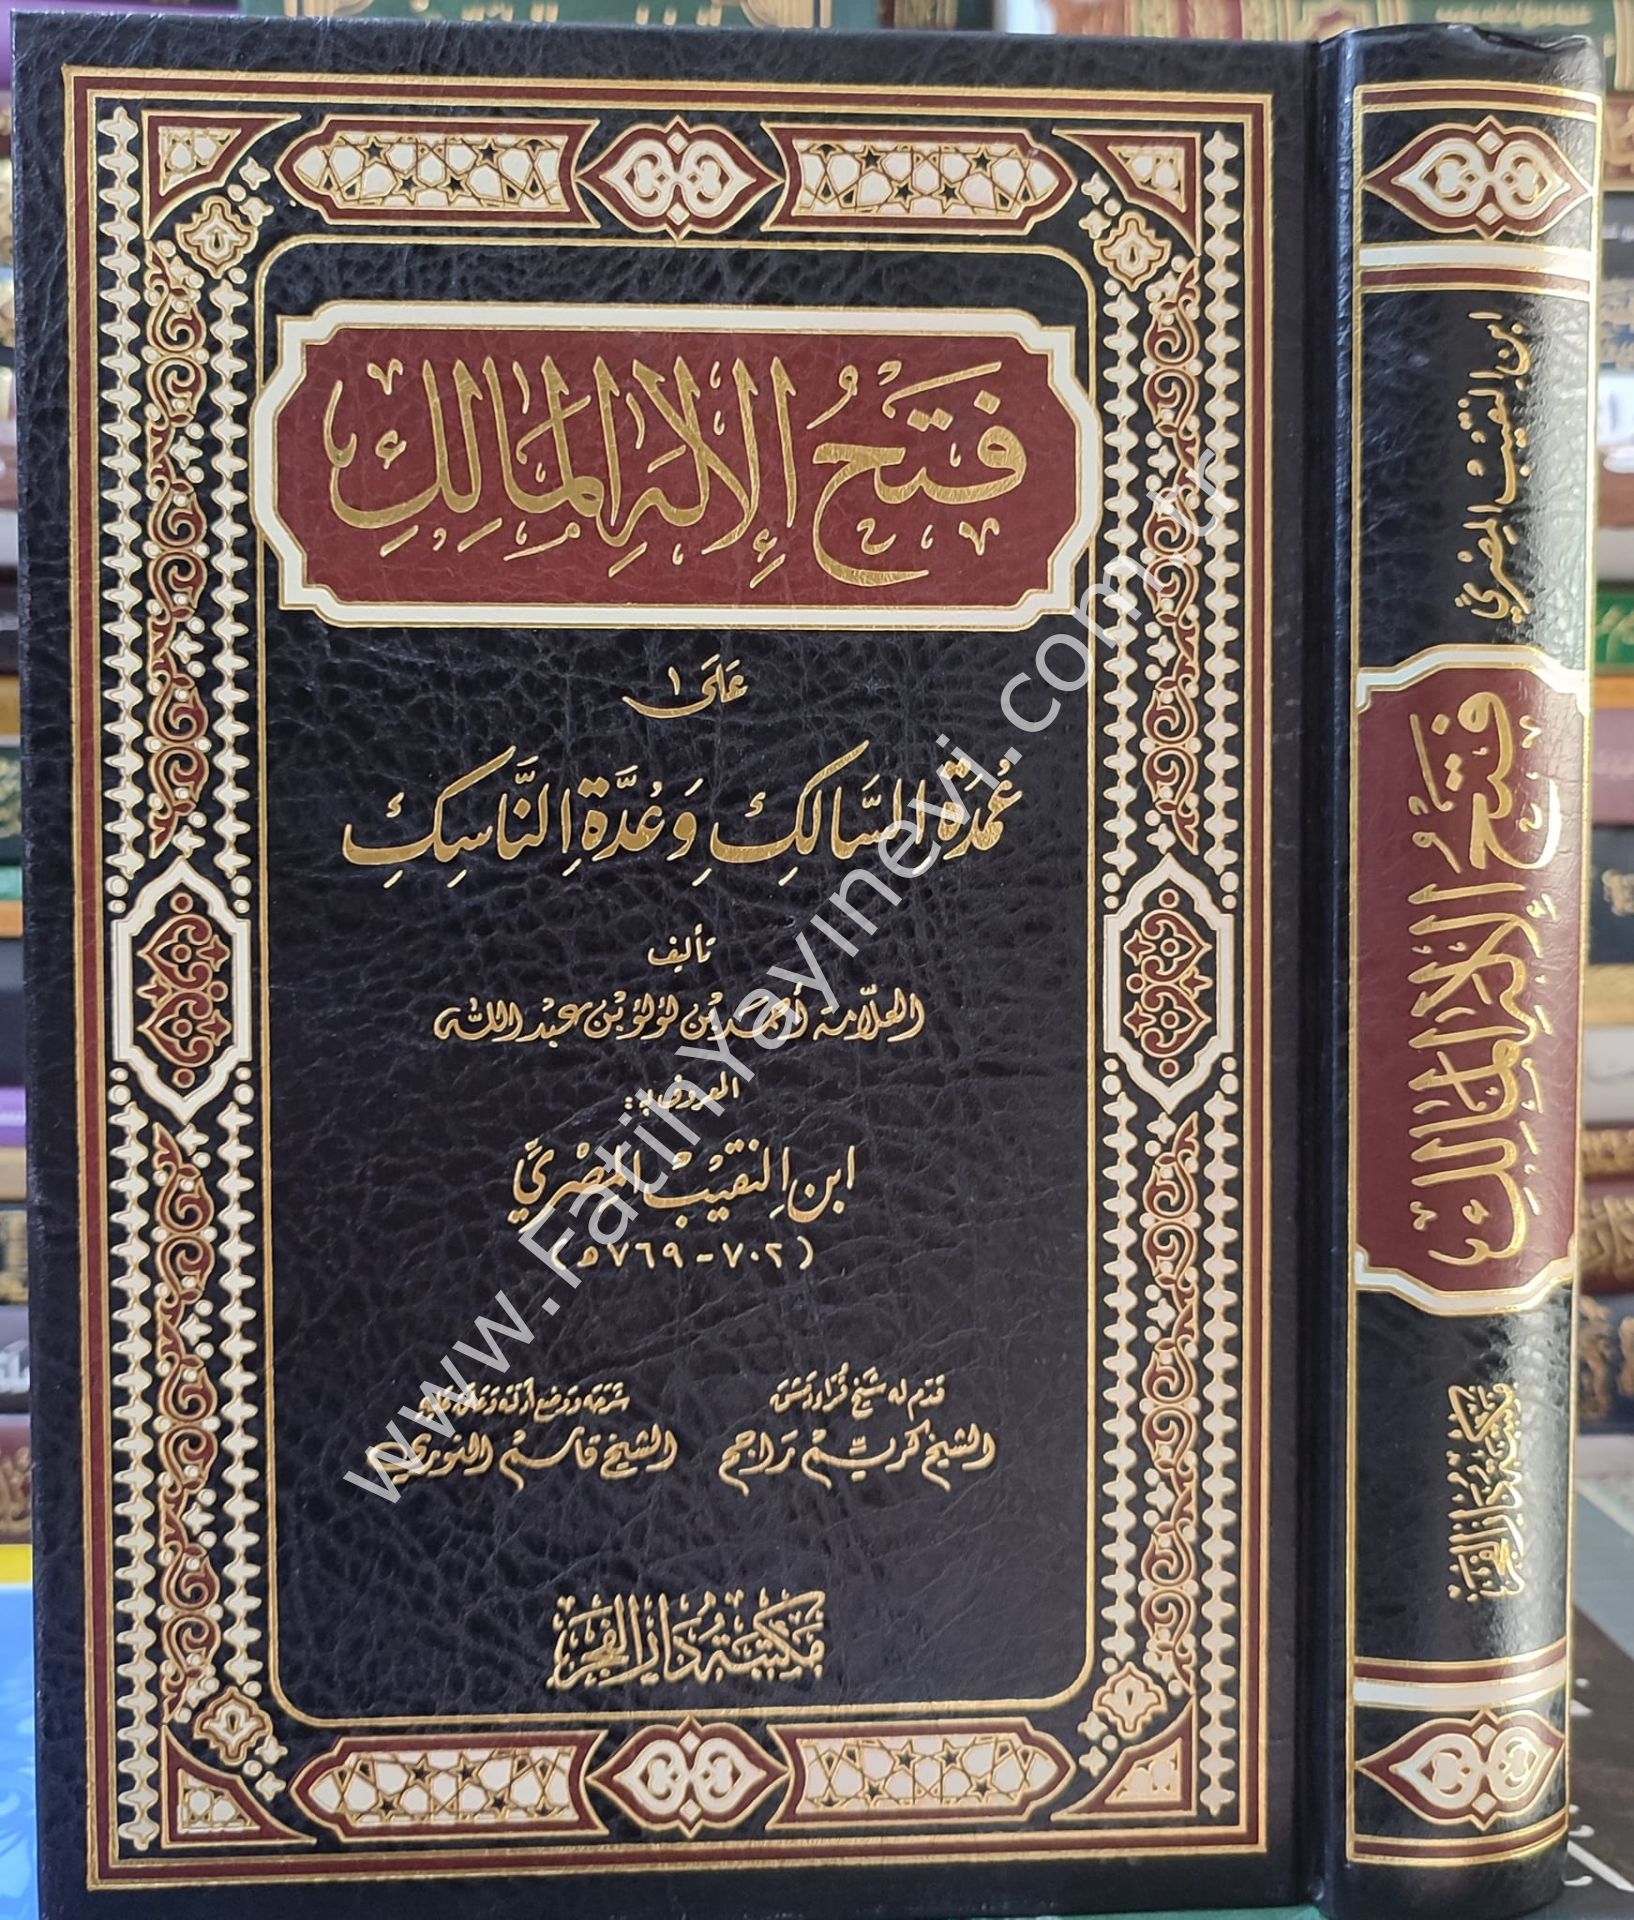 فَتْحُ الإِلَهِ المَالِكِ
عَلَى
عُمْدَةِ السَّالِكِ وَعُدَّةِ النَّاسِكِ
تأليف
العلّامة أحمد بن لؤلؤ بن عبد الله
المعروف بـ:
ابن النقيب المصري
(٧٠٢ - ٧٦٩ هـ)
قدّم له شيخ قرّاء دمشق
الشيخ كريّم راجح
شرحه ووضع أدلته وعلق عليه
الشيخ قاسم النوري
مكتبة دار الفجر
ابن النقيب المصري
فتح الإله المالك
مكتبة دار الفجر
www.FatihYayinevi.com.tr